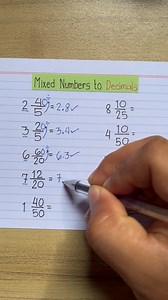 Mixed Numbers to Decimals
2 4/5 = 2.8 ✓
3 2/5 = 3.4 ✓
6 6/20 = 6.3 ✓
7 12/20 = 7.
1 40/50 =
8 10/25 =
4 10/50 =